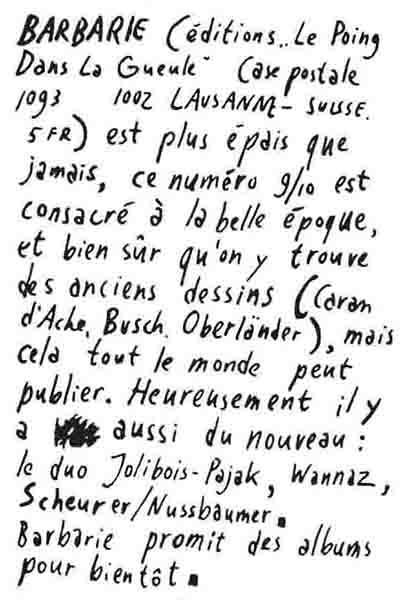 BARBARIE (éditions.. Le Poing
Dans La Gueule" Case postale
1093 1002 LAUSANNE - SUISSE.
5 FR) est plus épais que
jamais, ce numéro 9/10 est
consacré à la belle époque,
et bien sûr qu'on y trouve
des anciens dessins (Caran
d'Ache, Busch, Oberländer), mais
cela tout le monde peut
publier. Heureusement il y
a aussi du nouveau :
le duo Jolibois-Pajak, Wannaz,
Scheurer/Nussbaumer.
Barbarie promit des albums
pour bientôt.